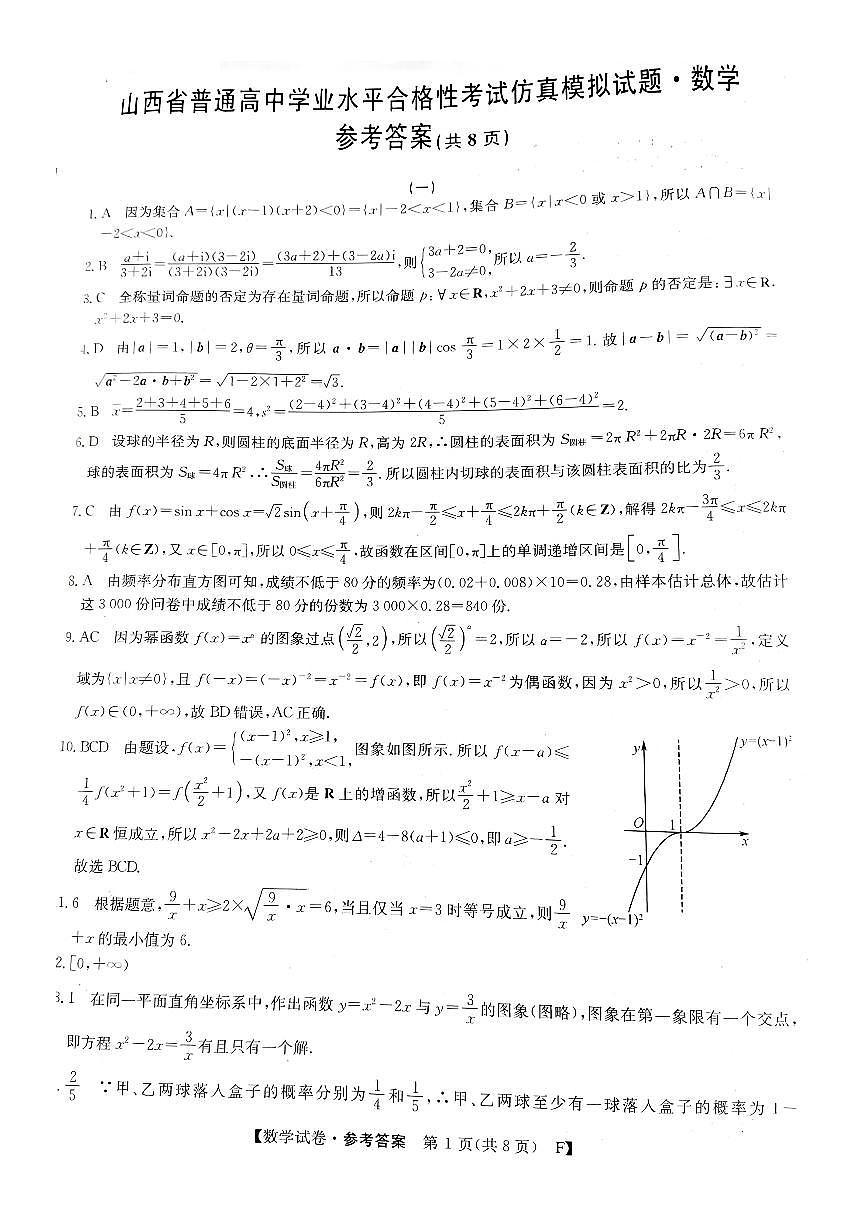 山西省普通高中学业水平合格性考试仿真模拟试题·数学
参考答案(共8页)
(一)
1. A 因为集合 A={x|(x-1)(x+2)<0}={x|-2<x<1},集合 B={x|x<0 或 x>1},所以 A∩B={x|
-2<x<0}.
2. B \frac{a+i}{3+2i}=\frac{(a+i)(3-2i)}{(3+2i)(3-2i)}=\frac{(3a+2)+(3-2a)i}{13},则{3a+2=0, 3-2a≠0,所以 a=-\frac{2}{3}.
3. C 全称量词命题的否定为存在量词命题,所以命题 p:∀x∈R,x²+2x+3≠0,则命题 p 的否定是:∃x∈R.
x²+2x+3=0.
4. D 由|a|=1,|b|=2,θ=\frac{π}{3},所以 a·b=|a||b|cos\frac{π}{3}=1×2×\frac{1}{2}=1.故|a-b|=\sqrt{(a-b)²}=
\sqrt{a²-2a·b+b²}=\sqrt{1-2×1+2²}=\sqrt{3}.
5. B \bar{x}=\frac{2+3+4+5+6}{5}=4,s²=\frac{(2-4)²+(3-4)²+(4-4)²+(5-4)²+(6-4)²}{5}=2.
6. D 设球的半径为 R,则圆柱的底面半径为 R,高为 2R,∴圆柱的表面积为 S圆柱=2πR²+2πR·2R=6πR²,
球的表面积为 S球=4πR².∴\frac{S球}{S圆柱}=\frac{4πR²}{6πR²}=\frac{2}{3}.所以圆柱内切球的表面积与该圆柱表面积的比为\frac{2}{3}.
7. C 由 f(x)=sin x+cos x=\sqrt{2}sin(x+\frac{π}{4}),则 2kπ-\frac{π}{2}≤x+\frac{π}{4}≤2kπ+\frac{π}{2}(k∈Z),解得 2kπ-\frac{3π}{4}≤x≤2kπ
+\frac{π}{4}(k∈Z),又 x∈[0,π],所以 0≤x≤\frac{π}{4}.故函数在区间[0,π]上的单调递增区间是[0,\frac{π}{4}].
8. A 由频率分布直方图可知,成绩不低于 80 分的频率为(0.02+0.008)×10=0.28,由样本估计总体,故估计
这 3 000 份问卷中成绩不低于 80 分的份数为 3 000×0.28=840 份.
9. AC 因为幂函数 f(x)=xᵅ 的图象过点(\frac{\sqrt{2}}{2},2),所以(\frac{\sqrt{2}}{2})ᵅ=2,所以 α=-2,所以 f(x)=x⁻²=\frac{1}{x²},定义
域为{x|x≠0},且 f(-x)=(-x)⁻²=x⁻²=f(x),即 f(x)=x⁻² 为偶函数,因为 x²>0,所以\frac{1}{x²}>0,所以
f(x)∈(0,+∞),故 BD 错误,AC 正确.
10. BCD 由题设,f(x)={(x-1)²,x≥1, -(x-1)²,x<1, 图象如图所示.所以 f(x-a)≤
\frac{1}{4}f(x²+1)=f(\frac{x²}{2}+1),又 f(x)是 R 上的增函数,所以\frac{x²}{2}+1≥x-a 对
x∈R 恒成立,所以 x²-2x+2a+2≥0,则 Δ=4-8(a+1)≤0,即 a≥-\frac{1}{2}.
故选 BCD.
y
y=(x-1)²
O
1
x
-1
y=-(x-1)²
1. 6 根据题意,\frac{9}{x}+x≥2×\sqrt{\frac{9}{x}·x}=6,当且仅当 x=3 时等号成立,则\frac{9}{x}
+x 的最小值为 6.
2. [0,+∞)
3. 1 在同一平面直角坐标系中,作出函数 y=x²-2x 与 y=\frac{3}{x}的图象(图略),图象在第一象限有一个交点,
即方程 x²-2x=\frac{3}{x}有且只有一个解.
. \frac{2}{5} ∵甲、乙两球落入盒子的概率分别为\frac{1}{4}和\frac{1}{5},∴甲、乙两球至少有一球落入盒子的概率为 1-
【数学试卷·参考答案 第 1 页(共 8 页) F】